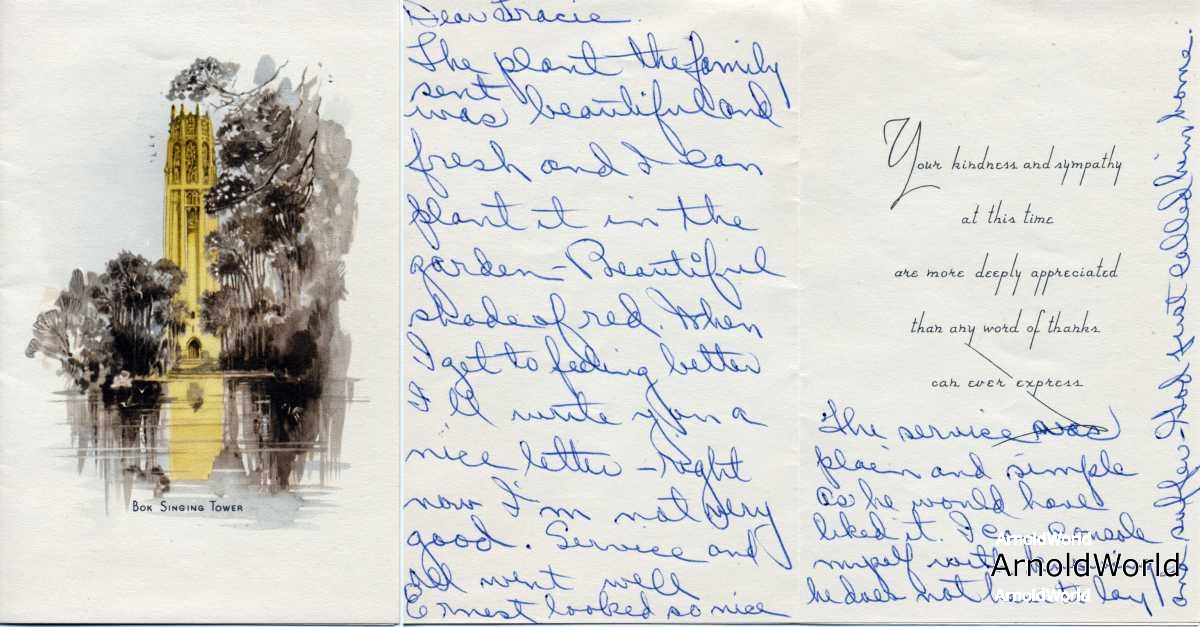 BOK SINGING TOWER
Dear Gracie.
The plant the family
sent
was beautiful and
fresh and I can
plant it in the
garden - Beautiful
shade of red. When
I get to feeling better
I'll write you a
nice letter - right
now I'm not very
good. Service and
all went well
Ernest looked so nice
Your kindness and sympathy
at this time
are more deeply appreciated
than any word of thanks
can ever express
The service was
plain and simple
as he would have
liked it. I can console
myself with
he does not lay
and suffer - God just called him home.
ArnoldWorld
ArnoldWorld
ArnoldWorld